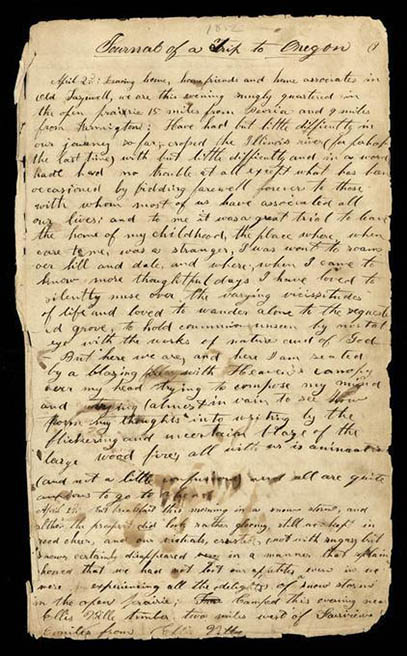 1852
Journal of a Trip to Oregon
April 22: Leaving home, home friends and home associates in
Old Tazewell, we are this evening snugly quartered in
the open prairie 15 miles from Peoria and 9 miles
from Farmington; Have had but little difficulty in
our journey so far, crossed the Illinois river (for perhaps
the last time) with but little difficulty and in a word
have had no trouble at all except what has been
occasioned by bidding farewell forever to those
with whom most of us have associated all
our lives; and to me it was a great trial to leave
the home of my childhood, the place where, when
care to me, was a stranger, I was wont to roam
oer hill and dale, and where, when I came to
know more thoughtful days I have loved to
silently muse over the varying vicissitudes
of life and loved to wander alone to the sequester
ed grove, to hold communion unseen by mortal
eye with the works of nature and of God
- But here we are, and here I am seated
by a blazing fire with Heaven's canopy
over my head trying to compose my mind
and trying (almost) in vain to see how
form my thoughts into writing by the
flickering and uncertain blaze of the
large wood fire, all with us is animation
(and not a little confusion) and all are quite
anxious to go to
April 23: breakfast this morning in a snow storm, and
altho the prospect did look rather gloomy, still we kept in
good cheer, and our victuals, (not with sugar) but
snow, certainly disappeared in a manner that
showed that we had not lost our appetites even if we
were experiencing all the delights of a snow storm
in the open prairie; Camped this evening near
Ellis timber, two miles west of Fairview
miles from Ellis